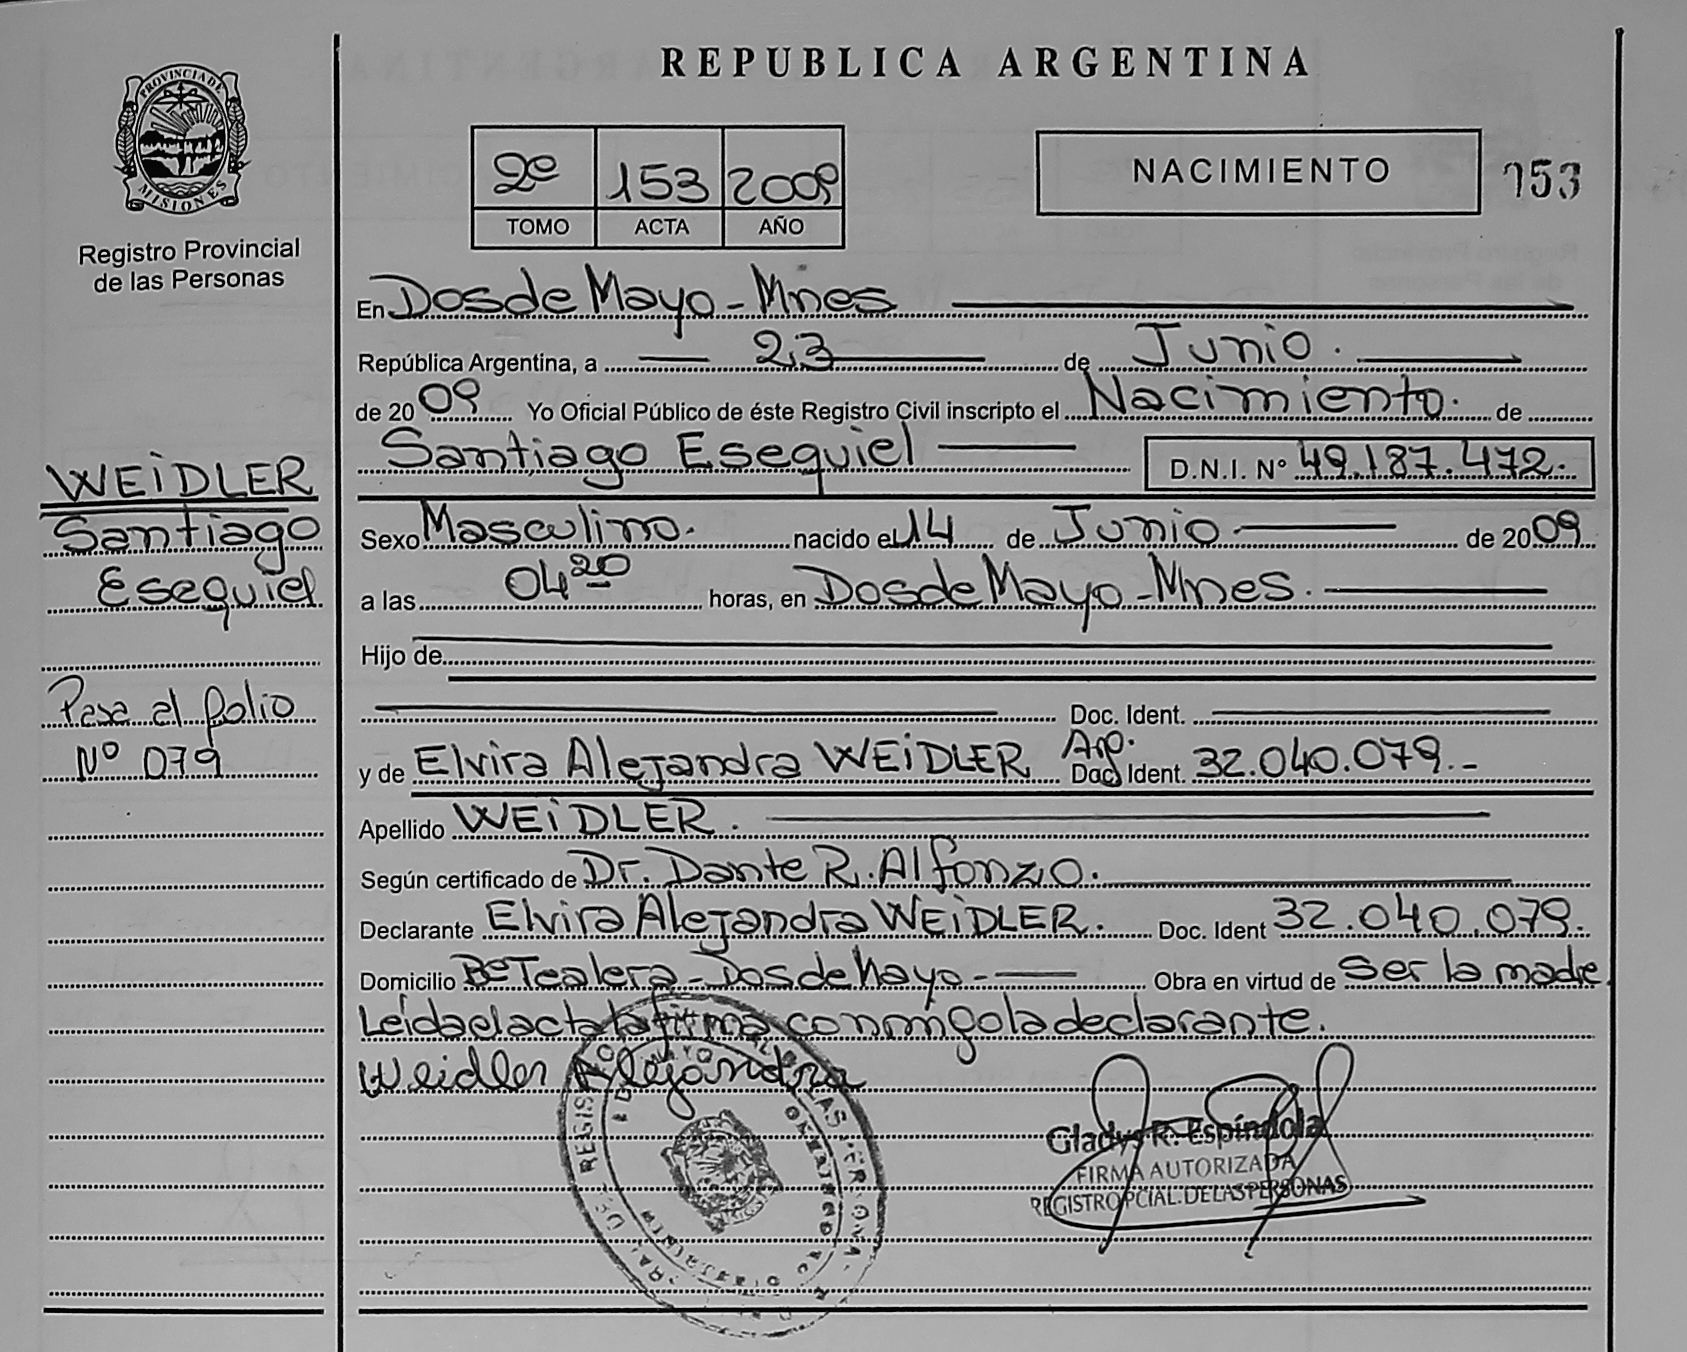 REPUBLICA ARGENTINA
PROVINCIA DE MISIONES
Registro Provincial
de las Personas
2º 153 2009
TOMO ACTA AÑO
NACIMIENTO 153
En Dos de Mayo - Mnes
República Argentina, a 23 de Junio.
de 2009 Yo Oficial Público de éste Registro Civil inscripto el Nacimiento. de
Santiago Esequiel D.N.I. Nº 49.187.472.
Sexo Masculino. nacido el 14 de Junio de 2009
a las 04 20 horas, en Dos de Mayo - Mnes.
Hijo de
Doc. Ident.
y de Elvira Alejandra WEiDLER Arg. Doc. Ident. 32.040.079.-
Apellido WEiDLER.
Según certificado de Dr. Dante R. Alfonzo.
Declarante Elvira Alejandra WEiDLER. Doc. Ident 32.040.079.
Domicilio Bº Tealera - Dos de Mayo - Obra en virtud de Ser la madre
Leída el acta la firma conmigo la declarante.
Weidler Alejandra
Gladys R. Espíndola
FIRMA AUTORIZADA
REGISTRO PCIAL. DE LAS PERSONAS
WEiDLER
Santiago
Esequiel
Pasa al folio
Nº 079